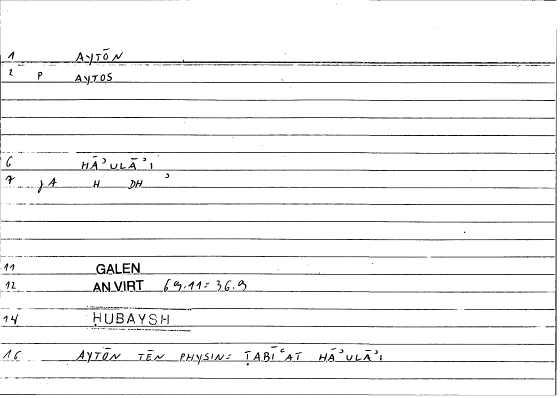 1 AYTŌN
2 P AYTOS
6 HĀʾULĀʾI
7 JA H DH ʾ
11 GALEN
12 AN.VIRT 69.11 = 36.9
14 ḤUBAYSH
16 AYTŌN TĒN PHYSIN = ṬABĪʿAT HĀʾULĀʾI